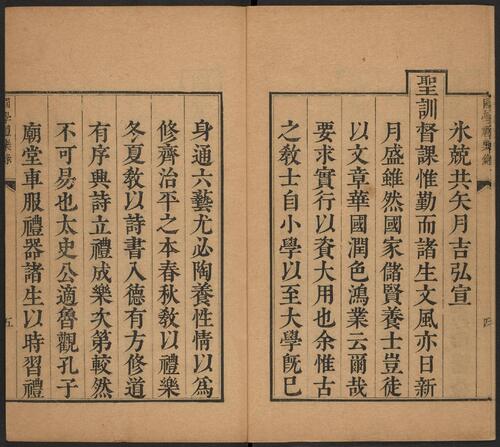 國學禮樂錄
氷兢共矢月吉弘宣
聖訓督課惟勤而諸生文風亦日新
月盛雖然國家儲賢養士豈徒
以文章華國潤色鴻業云爾哉
要求實行以資大用也余惟古
之敎士自小學以至大學旣已
四
身通六藝尤必陶養性情以爲
修齊治平之本春秋敎以禮樂
冬夏敎以詩書入德有方修道
有序興詩立禮成樂次第較然
不可易也太史公適魯觀孔子
廟堂車服禮器諸生以時習禮
國學禮樂錄
五